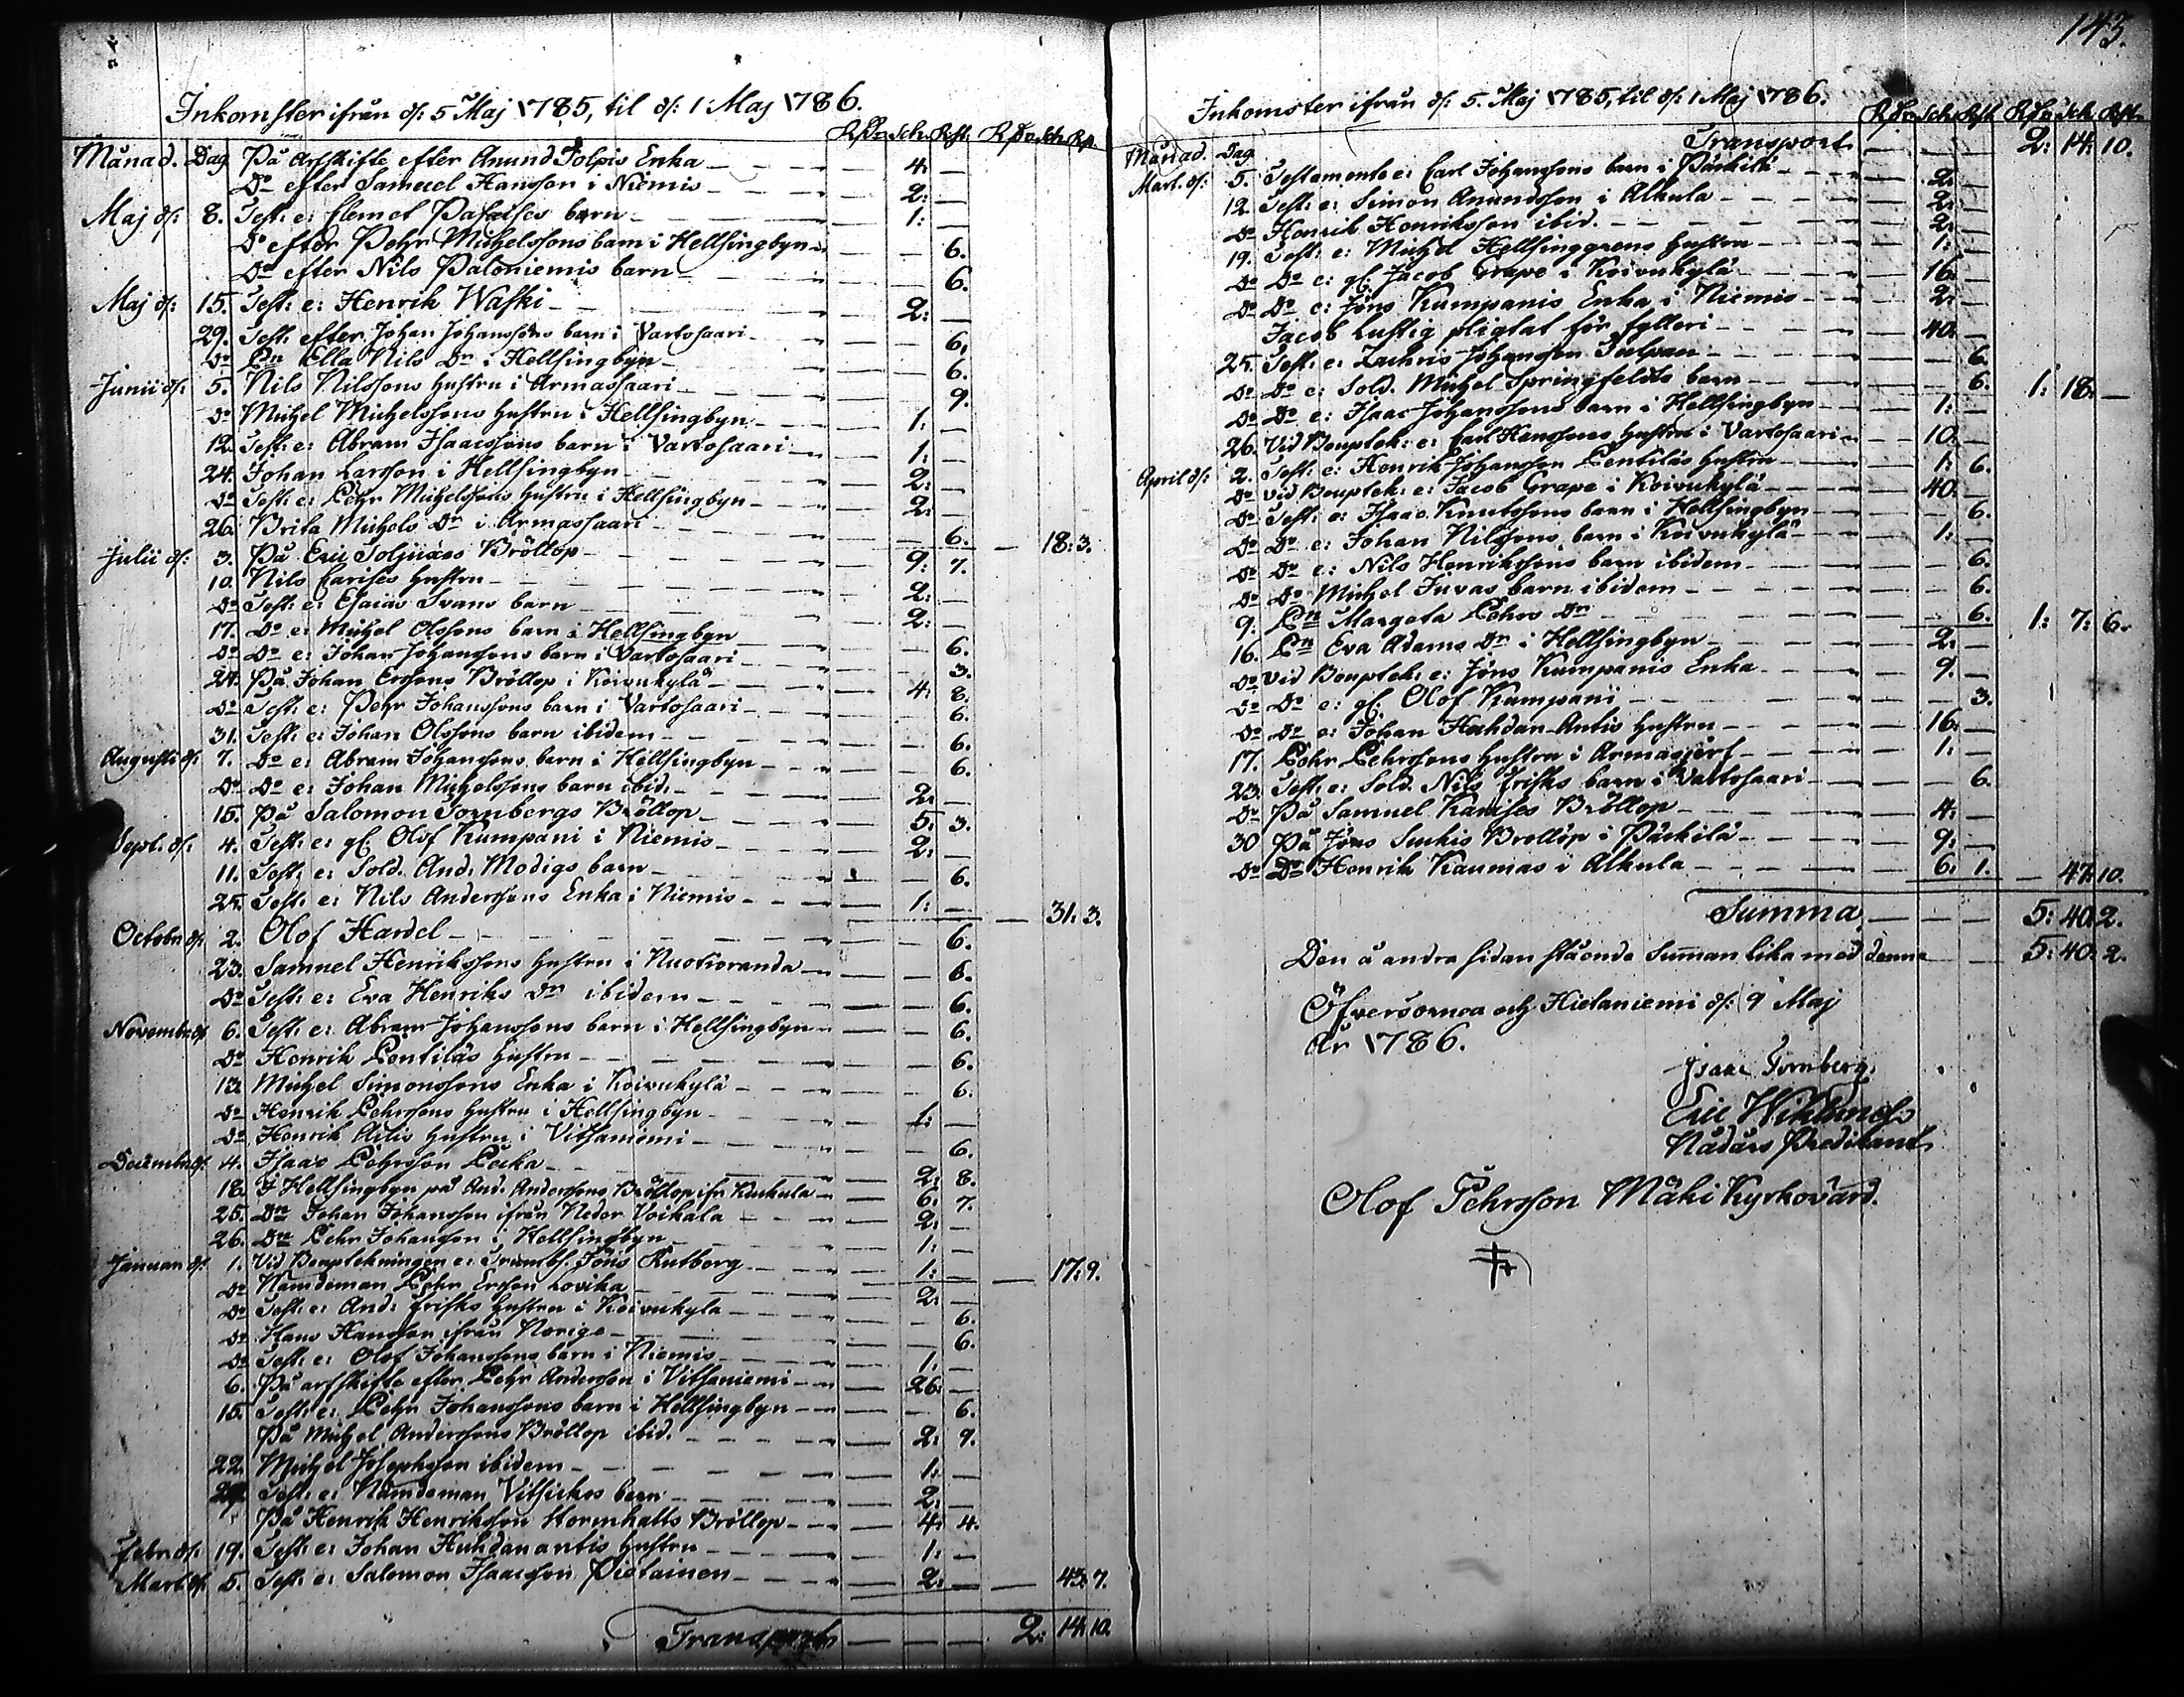 143.
Inkomster ifrån d: 5 Maj 1785, til d: 1 Maj 1786.
R.dr Sch. Rst. R.dr Sch Rst.
Månad. Dag. På Arfskifte efter Anund Tolpis Enka — 4: —
Do efter Samuel Hansson i Niemis — 2: —
Maj d: 8. Test: e: Clemet Pasaises barn — 1: —
Do efter Pehr Michelssons barn i Hellsingbyn — 6.
Do efter Nils Paloniemis barn — 6.
Maj d: 15. Test: e: Henrik Waski — 2: —
29. Test: efter Johan Johanssons barn i Vartosaari — 6.
Do Pn Ella Nils Dr i Hellsingbyn — 6.
Junii d: 5. Nils Nilssons hustru i Armassaari — 9.
Do Michel Michelssons hustru i Hellsingbyn — 1: —
12. Test: e: Abram Isaacssons barn i Vartosaari — 1: —
24. Johan Larsson i Hellsingbyn — 2: —
Do Test: e: Pehr Michelssons hustru i Hellsingbyn — 2: —
26. Brita Michels Dr i Armassaari — 6. — 18: 3.
Julii d: 3. På Eric Bröllop — 9: 7.
10. Nils Carises hustru — 2: —
Do Test: e: Esaias Svans barn — 2: —
17. Do e: Michel Olssons barn i Hellsingbyn — 6.
Do Do e: Johan Johanssons barn i Vartosaari — 3.
24. På Johan Erssons Bröllop i Koivukylä — 4: 8.
Do Test: e: Pehr Johanssons barn i Vartosaari — 6.
31. Test: e: Johan Olssons barn ibidem — 6.
Augusti d: 7. Do e: Abram Johanssons barn i Hellsingbyn — 6.
Do Do e: Johan Michelssons barn ibid. — 2: —
15. På Salomon Tornbergs Bröllop — 5: 3.
Sept. d: 4. Test: e: gl. Olof Kumpani i Niemis — 2: —
11. Test: e: Sold. And: Modigs barn — 6.
25. Test: e: Nils Anderssons Enka i Niemis — 1: — 31: 3.
Octobr d: 2. Olof Hardel — 6.
23. Samuel Henrikssons hustru i Nuotioranda — 6.
Do Test: e: Eva Henriks Dr ibidem — 6.
Novembr d: 6. Test: e: Abram Johanssons barn i Hellsingbyn — 6.
Do Henrik Pentiläs hustru — 6.
13. Michel Simonssons Enka i Koivukylä — 6.
Do Henrik Pehrssons hustru i Hellsingbyn — 1: —
Do Henrik Ailis hustru i Vitsaniemi — 6.
Decembr d: 4. Isaac Pehrsson Pecka — 2: 8.
18. I Hellsingbyn på And. Anderssons Bröllop ifr. Kuckula — 6: 7.
25. Do Johan Johansson ifrån Neder Voikala — 2: —
26. Do Pehr Johansson i Hellsingbyn — 1: —
Januari d: 1. Vid Bouptekningen e: Trumsl. Jöns Rutberg — 1: — 17: 9.
Do Nämdeman Pehr Ersson Lovika — 2: —
Do Test: e: And: Frisks hustru i Koivukyla — 6.
Do Hans Hansson ifrån Norige — 6.
Do Test: e: Olof Johanssons barn i Niemis — 1: —
6. På arfskifte efter Pehr Andersson i Vitsaniemi — 26: —
15. Test: e: Pehr Johanssons barn i Hellsingbyn — 6.
På Michel Anderssons Bröllop ibid. — 2: 9.
22. Michel Josephsson ibidem — 1: —
29. Test: e: Nämdeman Vitsickos barn — 2: —
På Henrik Henriksson Bröllop — 4: 4.
Febr. d: 19. Test: e: Johan Huhdanantis hustru — 1: —
Mart. d: 5. Test: e: Salomon Isaacsson Pietainen — 2: — 43: 7.
Transport — 2: 14: 10.
Inkomster ifrån d: 5. Maj 1785, til d: 1 Maj 1786.
R.dr Sch. Rst. R.dr Sch. Rst.
Transport — 2: 14: 10.
Månad. Dag
Mart. d: 5. Testamente e: Carl Johanssons barn i Päckilä — 2: —
12. Test: e: Simon Anundsson i Alkula — 2: —
Do Henrik Henriksson ibid. — 2: —
19. Test: e: Michel Hellsinggrens hustru — 1: —
Do Do e: gl. Jacob Grape i Koivukylä — 16: —
Do Do e: Jöns Kumpanis Enka i Niemis — 2: —
Jacob Lustig pligtat för fylleri — 40: —
25. Test: e: Zachris Johansson — 6.
Do Do e: Sold. Michel Springfeldts barn — 6. 1: 18: —
Do Do e: Isaac Johanssons barn i Hellsingbyn — 1: —
26. Vid Bouptek: e: Carl Hanssons hustru i Vartosaari — 10: —
April d: 2. Test: e: Henrik Johansson Pentiläs hustru — 1: 6.
Do Vid Bouptek: e: Jacob Grape i Koivukylä — 40: —
Do Test: e: Isaac Knutssons barn i Hellsingbyn — 6.
Do Do e: Johan Nilssons barn i Koivukylä — 1: —
Do Do e: Nils Henrikssons barn ibidem — 6.
Do Do Michel Juvas barn ibidem — 6.
9. Pn Margeta Pehrs Dr — 6. 1: 7: 6.
16. Pn Eva Adams Dr i Hellsingbyn — 2: —
Do Vid Bouptek: e: Jöns Kumpanis Enka — 9. —
Do Do e: gl. Olof Kumpani — 3.
Do Do e: Johan Huhdan-Antis hustru — 16: —
17. Pehr Pehrssons hustru i Armasjerf — 1: —
23. Test: e: Sold. Nils Frisks barn i Vartosaari — 6.
Do På Samuel Karises Bröllop — 4: —
30 På Jöns Bröllop i Päckilä — 9: —
Do Do Henrik Kaumas i Alkula — 6: 1. — 47: 10.
Summa — 5: 40: 2.
Den å andra sidan stående Summan lika med denna — 5: 40: 2.
Öfvertornea och Hietaniemi d: 9 Maj
År 1786.
Isaac Tornberg.
Eric Wiklund
Nådårs Predikant
Olof Pehrsson Mäki Kyrkovärd.